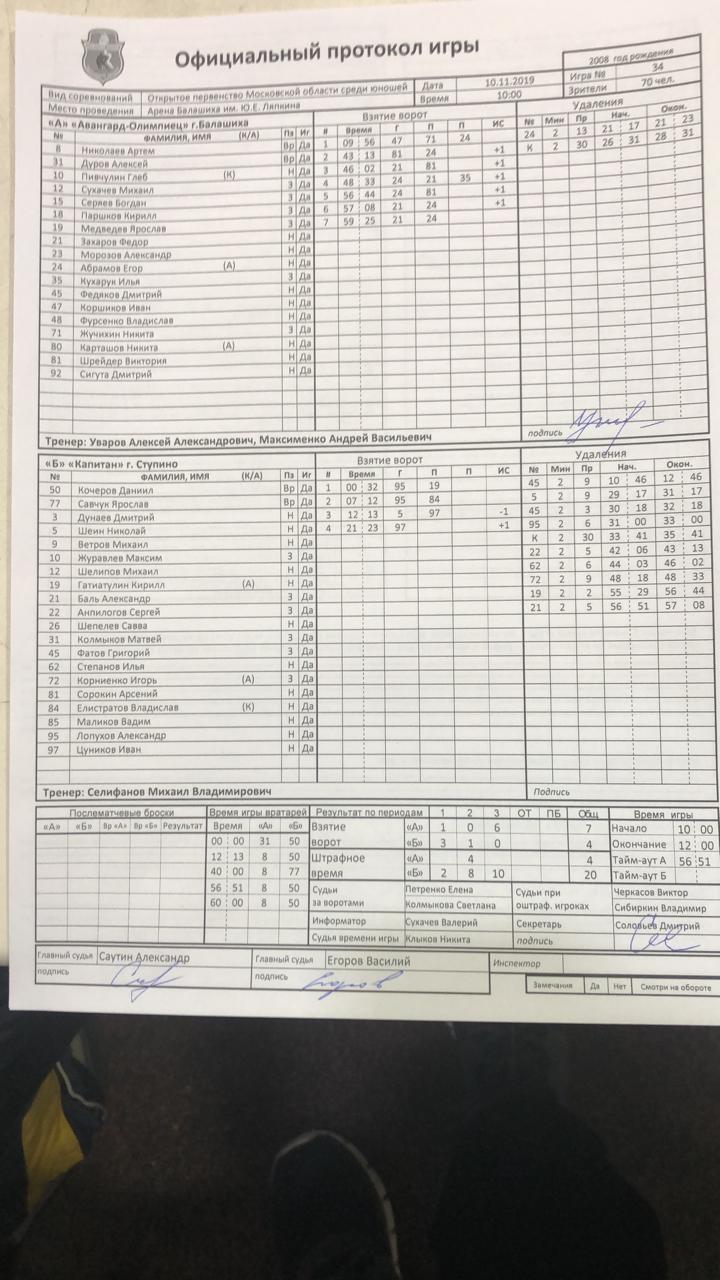 Официальный протокол игры
2008 год рождения
Вид соревнований Открытое первенство Московской области среди юношей Дата 10.11.2019 Игра № 34
Место проведения Арена Балашиха им. Ю.Е. Ляпкина Время 10:00 Зрители 70 чел.
«А» «Авангард-Олимпиец» г.Балашиха Взятие ворот Удаления
№ ФАМИЛИЯ, ИМЯ (К/А) Пз Иг # Время Г П П ИС № Мин Пр Нач. Окон.
8 Николаев Артем Вр Да 1 09 56 47 71 24 24 2 13 21 17 21 23
31 Дуров Алексей Вр Да 2 43 13 81 24 +1 К 2 30 26 31 28 31
10 Пивчулин Глеб (К) Н Да 3 46 02 21 81 +1
12 Сухачев Михаил З Да 4 48 33 24 21 35 +1
15 Серяев Богдан З Да 5 56 44 24 81 +1
18 Паршков Кирилл З Да 6 57 08 21 24 +1
19 Медведев Ярослав З Да 7 59 25 21 24
21 Захаров Федор Н Да
23 Морозов Александр Н Да
24 Абрамов Егор (А) Н Да
35 Кухарук Илья З Да
45 Федяков Дмитрий Н Да
47 Коршиков Иван Н Да
48 Фурсенко Владислав Н Да
71 Жучихин Никита З Да
80 Карташов Никита (А) Н Да
81 Шрейдер Виктория Н Да
92 Сигута Дмитрий Н Да
Тренер: Уваров Алексей Александрович, Максименко Андрей Васильевич подпись
«Б» «Капитан» г. Ступино Взятие ворот Удаления
№ ФАМИЛИЯ, ИМЯ (К/А) Пз Иг # Время Г П П ИС № Мин Пр Нач. Окон.
50 Кочеров Даниил Вр Да 1 00 32 95 19 45 2 9 10 46 12 46
77 Савчук Ярослав Вр Да 2 07 12 95 84 5 2 9 29 17 31 17
3 Дунаев Дмитрий Н Да 3 12 13 5 97 -1 45 2 3 30 18 32 18
5 Шеин Николай Н Да 4 21 23 97 +1 95 2 6 31 00 33 00
9 Ветров Михаил Н Да К 2 30 33 41 35 41
10 Журавлев Максим З Да 22 2 5 42 06 43 13
12 Шелипов Михаил Н Да 62 2 6 44 03 46 02
19 Гатиатулин Кирилл (А) Н Да 72 2 9 48 18 48 33
21 Баль Александр З Да 19 2 2 55 29 56 44
22 Анпилогов Сергей З Да 21 2 5 56 51 57 08
26 Шепелев Савва Н Да
31 Колмыков Матвей З Да
45 Фатов Григорий З Да
62 Степанов Илья Н Да
72 Корниенко Игорь (А) З Да
81 Сорокин Арсений Н Да
84 Елистратов Владислав (К) Н Да
85 Маликов Вадим Н Да
95 Лопухов Александр Н Да
97 Цуников Иван Н Да
Тренер: Селифанов Михаил Владимирович Подпись
Послематчевые броски Время игры вратарей Результат по периодам 1 2 3 ОТ ПБ Общ Время игры
«А» «Б» Вр «А» Вр «Б» Результат Время «А» «Б» Взятие «А» 1 0 6 7 Начало 10 00
00 00 31 50 ворот «Б» 3 1 0 4 Окончание 12 00
12 13 8 50 Штрафное «А» 4 4 Тайм-аут А 56 51
40 00 8 77 время «Б» 2 8 10 20 Тайм-аут Б
56 51 8 50 Судьи Петренко Елена Судьи при Черкасов Виктор
60 00 8 50 за воротами Колмыкова Светлана оштраф. игроках Сибиркин Владимир
Информатор Сухачев Валерий Секретарь Соловьев Дмитрий
Судья времени игры Клыков Никита подпись
Главный судья Саутин Александр Главный судья Егоров Василий Инспектор
подпись подпись Егоров Замечания Да Нет Смотри на обороте